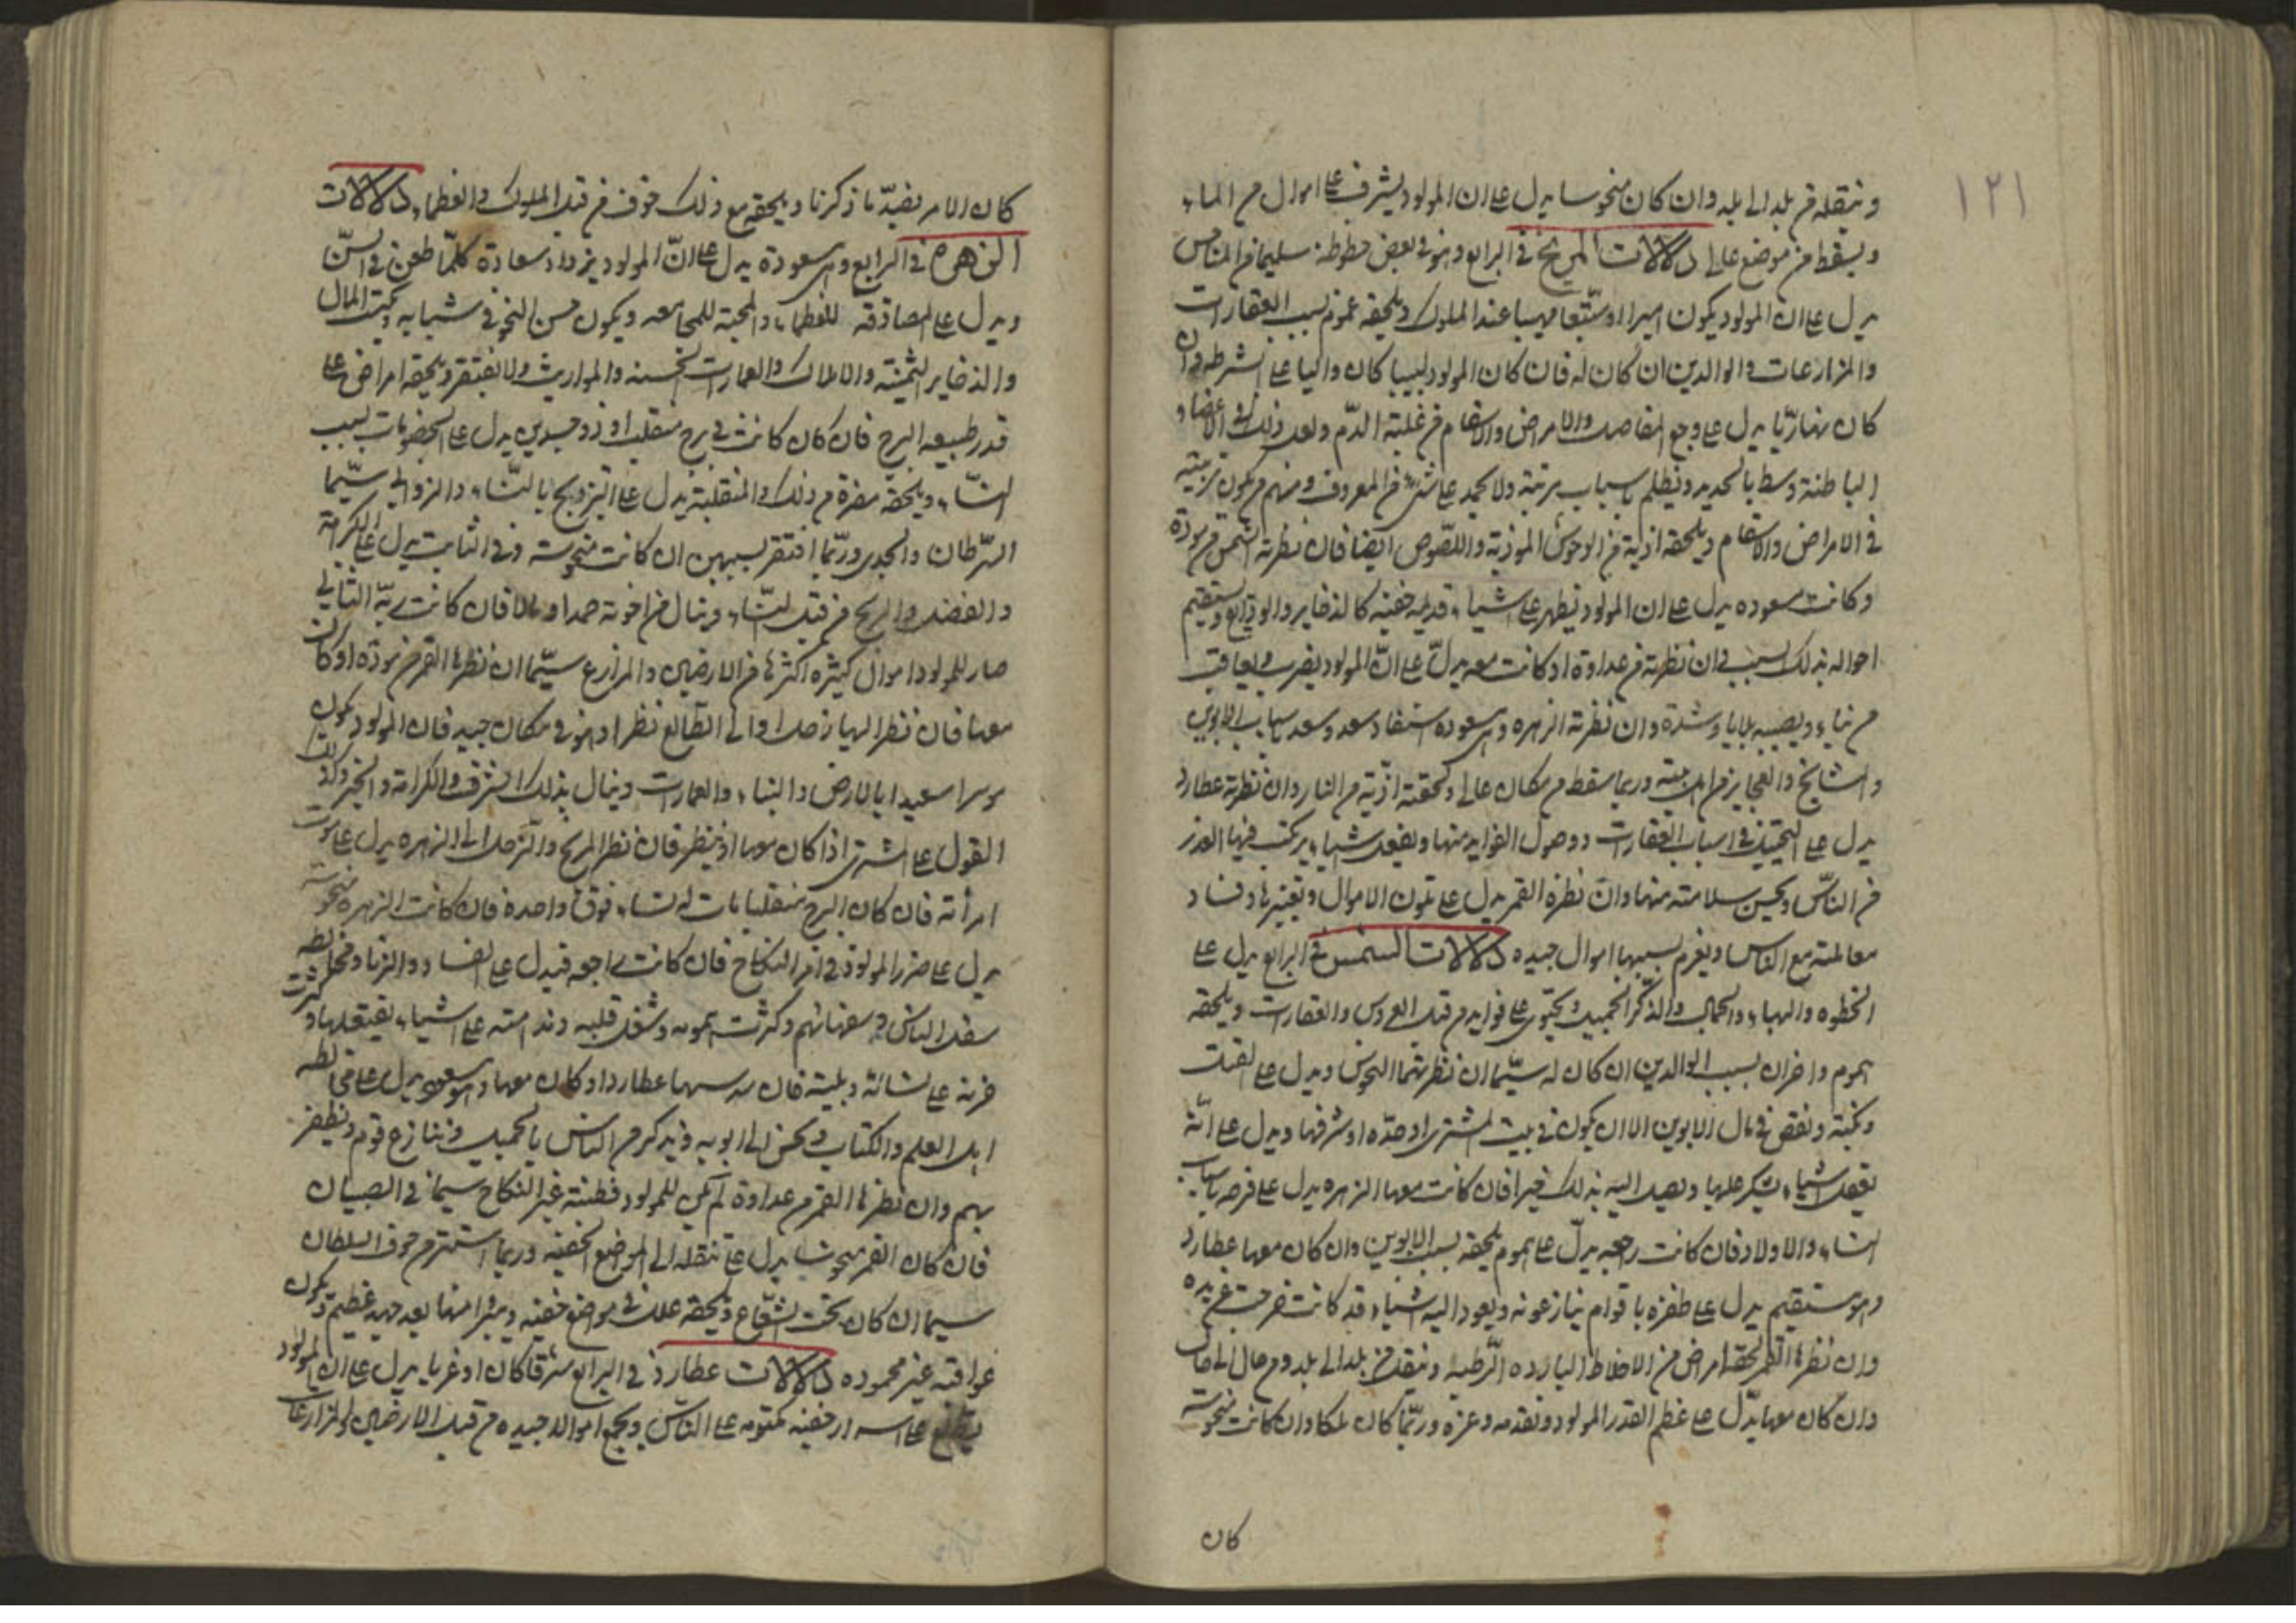 ١٢١
وينقله من بلد الى بلد وان كان منحوسا يدل على ان المولود يشرف على اموال من الماء
ويسقط من موضع عالى دلالات المريخ في الرابع وهو في بعض حظوظه سليما من المناحس
يدل على ان المولود يكون اميرا او مهيبا عند الملوك ويلحقه غموم بسبب العقارات
والمزارعات والوالدين ان كان له فان كان المولود لبيبا كان واليا على الشرطه وان
كان نهاريّا يدل على وجع المفاصل والامراض والاسقام من غلبة الدّم ولعل ذلك في الاعضاء
الباطنة وبسط بالحديد ويظلم باسباب ولا يحمد على شىء من المعروف ومنهم من يكون تربيته
في الامراض والاسقام ويلحقه اذية من الوحوش الموذية واللّصوص ايضا فان نظرته الشمس من مودة
وكانت مسعوده يدل على ان المولود يظهر على اشياء قديمه خفية كالذخاير والودايع ويستقيم
احواله بذلك السبب وان نظرته من عداوة او كانت معه يدلّ على انّ المولود يضرب ويعاقب
ويصيبه بلايا وشدة وان نظرته الزهره وهي مسعوده استفاد سعد باسباب الابوين
والمشايخ والعجايز من اهل بيته وربما سقط من مكان عالى ولحقته اذيّة من النار وان نظرته عطارد
يدل على في اسباب العقارات ووصول الفوايد منها ويفعل اشياء يركب فيها الغدر
من النّاس ويحسن سلامته منها وان نظره القمر يدل على تلون الاموال وتغيرها وفساد
معاملته مع الناس ويغرم بسببها اموال جيده دلالات الشمس في الرابع يدل على
الخطوه والبهاء والجمال والذّكر الجميل ويحتوى على فوايد من قبل العروس والعقارات ويلحقه
هموم واحزان بسبب الوالدين ان كان له سيّما ان نظرتهما النحوس ويدل على
ونكبة ونقص في مال الابوين الا ان يكون في بيت المشترى او حدّه او شرفها ويدل على انّه
يفعل اشياء يشكر عليها ويصل اليه بذلك خيرا فان كانت معها الزهره يدل على فرحه باسباب
النساء والاولاد فان كانت راجعه يدلّ على هموم يلحقه بسبب الابوين وان كان معها عطارد
وهو مستقيم يدل على ظفره باقوام ينازعونه ويعود اليه اشياء قد كانت خرجت عن يده
وان نظرها القمر لحقه امراض من الاخلاط البارده الرّطبه وينقل من بلد الى بلد ومن حال الى حال
وان كان معها يدّل على عظم القدر المولود وتقدمه وعزه وربّما كان ملكا وان كانت منحوسة
كان
كان الامر بضدّ ما ذكرنا ويلحقه مع ذلك خوف من قبل الملوك والعظماء دلالات
الزهره في الرابع وهي مسعودة يدل على انّ المولود يزداد سعادة كلّما طعن في السنّ
ويدل على المصادقه للعظماء والمحبة للمجامعه ويكون حسن النحو في شبابه وكسب المال
والذخاير الثمينة والاملاك والعمارات الحسنه والمواريث ولا يفتقر ويلحقه امراض على
قدر طبيعه البرج فان كان كانت في برج منقلب او ذو جسدين يدل على الخصومات بسبب
النسّاء ويلحقه مضرة من ذلك والمنقلبة يدل على التزويج بالنسّاء والزوانى سيّما
السّرطان والجدى وربّما افتقر بسببهن ان كانت منحوسه وفي الثابت يدل على الكرامة
والفضل والربح من قبل النسّاء وينال من اخوته حمدا ومالا فان كانت ربّه الثانى
صار للمولود اموال كثيره اكثرها من الارضين والمزارع سيّما ان نظرها القمر من مودّه او كان
معها فان نظر اليها زحل والى الطّالع نظرا وهو في مكان جيد فان المولود يكون
موسرا سعيدا بالارض والبناء والعمارات وينال بذلك الشرف والكرامة والخير وكذلك
القول على المشترى اذا كان معها او ينظر فان نظر المريخ والزحل الى الزهره يدل على موت
امرأته فان كان البرج منقلبا مات له نساء فوق واحده فان كانت الزهره منحوسة
يدل على ضرر المولود في امر النكاح فان كانت راجعه فيدل على الفساد والزنا ومخالطة
سفل الناس وسفهائهم وكثرت همومه وشغل قلبه وندامته على اشياء يفعلها
حزنه على نسائه وبليته فان عطارد او كان معها وهو مسعود يدل على مخالطه
اهل العلم والكتاب ويحسن الى ابويه ويذكره من الناس بالجميل وينازع قوم ويظفر
بهم وان نظرها القمر من عداوة لم يكن للمولود فطنته غير النكاح سيما في الصبيان
فان كان القمر منحوسا يدل على تنقله الى المواضع الخفيه وربما استتر من خوف السلطان
سيما ان كان تحت الشّعاع ويلحقه علل في مواضع خفيه ويبرا منها بعد جهد عظيم ويكون
عواقبه غير محموده دلالات عطارد في الرابع شرقا كان او غربا يدل على ان المولود
يطلع على اسرار خفيه مكتومه على الناس ويجمع اموالا جيده من قبل الارضين والمزارعات